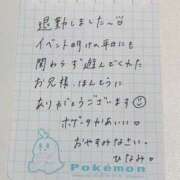 退勤しました〜
イベント明けの平日にも
関わらず遊んでくれた
お兄様、ほんとうに
ありがとうございます
ポケザかあいい♡
おやすみなさい。
ひなみ♡
Pokémon